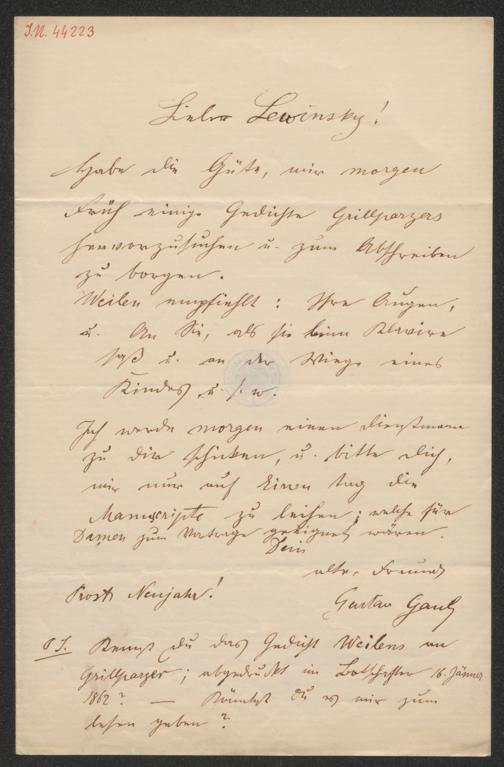 I.N. 44223
Lieber Lewinsky!
Habe die Güte, mir morgen
Früh einige Gedichte Grillparzers
hervorzusuchen u. zum Abschreiben
zu borgen.
Weilen empfiehlt: Ihre Augen,
u. An Sie, als sie beim Klavire
saß u. an der Wiege eines
Kindes, u. s. w.
Ich werde morgen einen Dienstmann
zu dir schicken, u. bitte dich,
mir nur auf Einen Tag die
Manuscripte zu leihen; welche für
Damen zum Vortrage geeignet wären.
Dein
alter Freund
Prosit Neujahr!
Gustav Gaul
PS. Kennst du das Gedicht Weilens an
Grillparzer; abgedruckt im Botschafter 16. Jänner
1862? — Könntest Du es mir zum
lesen geben?